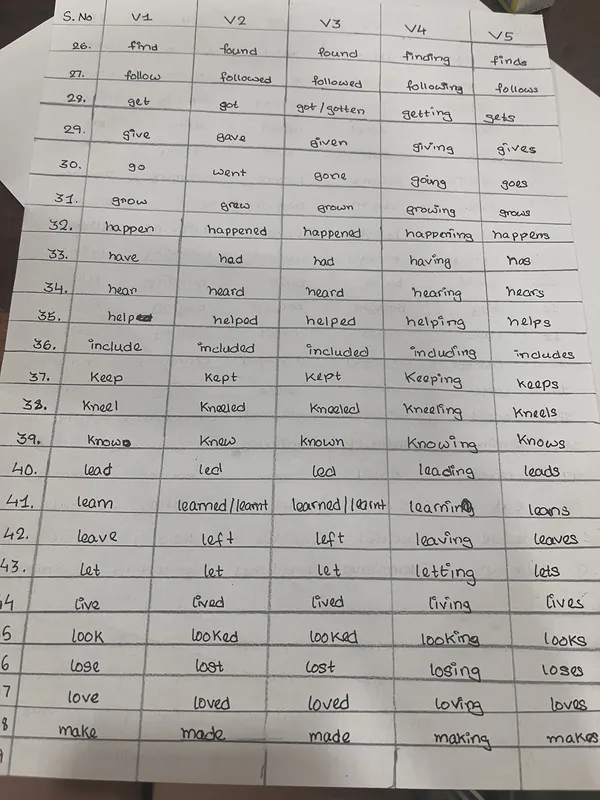 S.No V1 V2 V3 V4 V5
26. find found found finding finds
27. follow followed followed following follows
28. get got got/gotten getting gets
29. give gave given giving gives
30. go went gone going goes
31. grow grew grown growing grows
32. happen happened happened happening happens
33. have had had having has
34. hear heard heard hearing hears
35. help helped helped helping helps
36. include included included including includes
37. Keep Kept Kept Keeping Keeps
38. Kneel Kneeled Kneeled Kneeling Kneels
39. Know Knew Known Knowing Knows
40. lead led led leading leads
41. learn learned/learnt learned/learnt learning learns
42. leave left left leaving leaves
43. let let let letting lets
4 live lived lived living lives
5 look looked looked looking looks
6 lose lost lost losing loses
7 love loved loved loving loves
8 make made made making makes
9